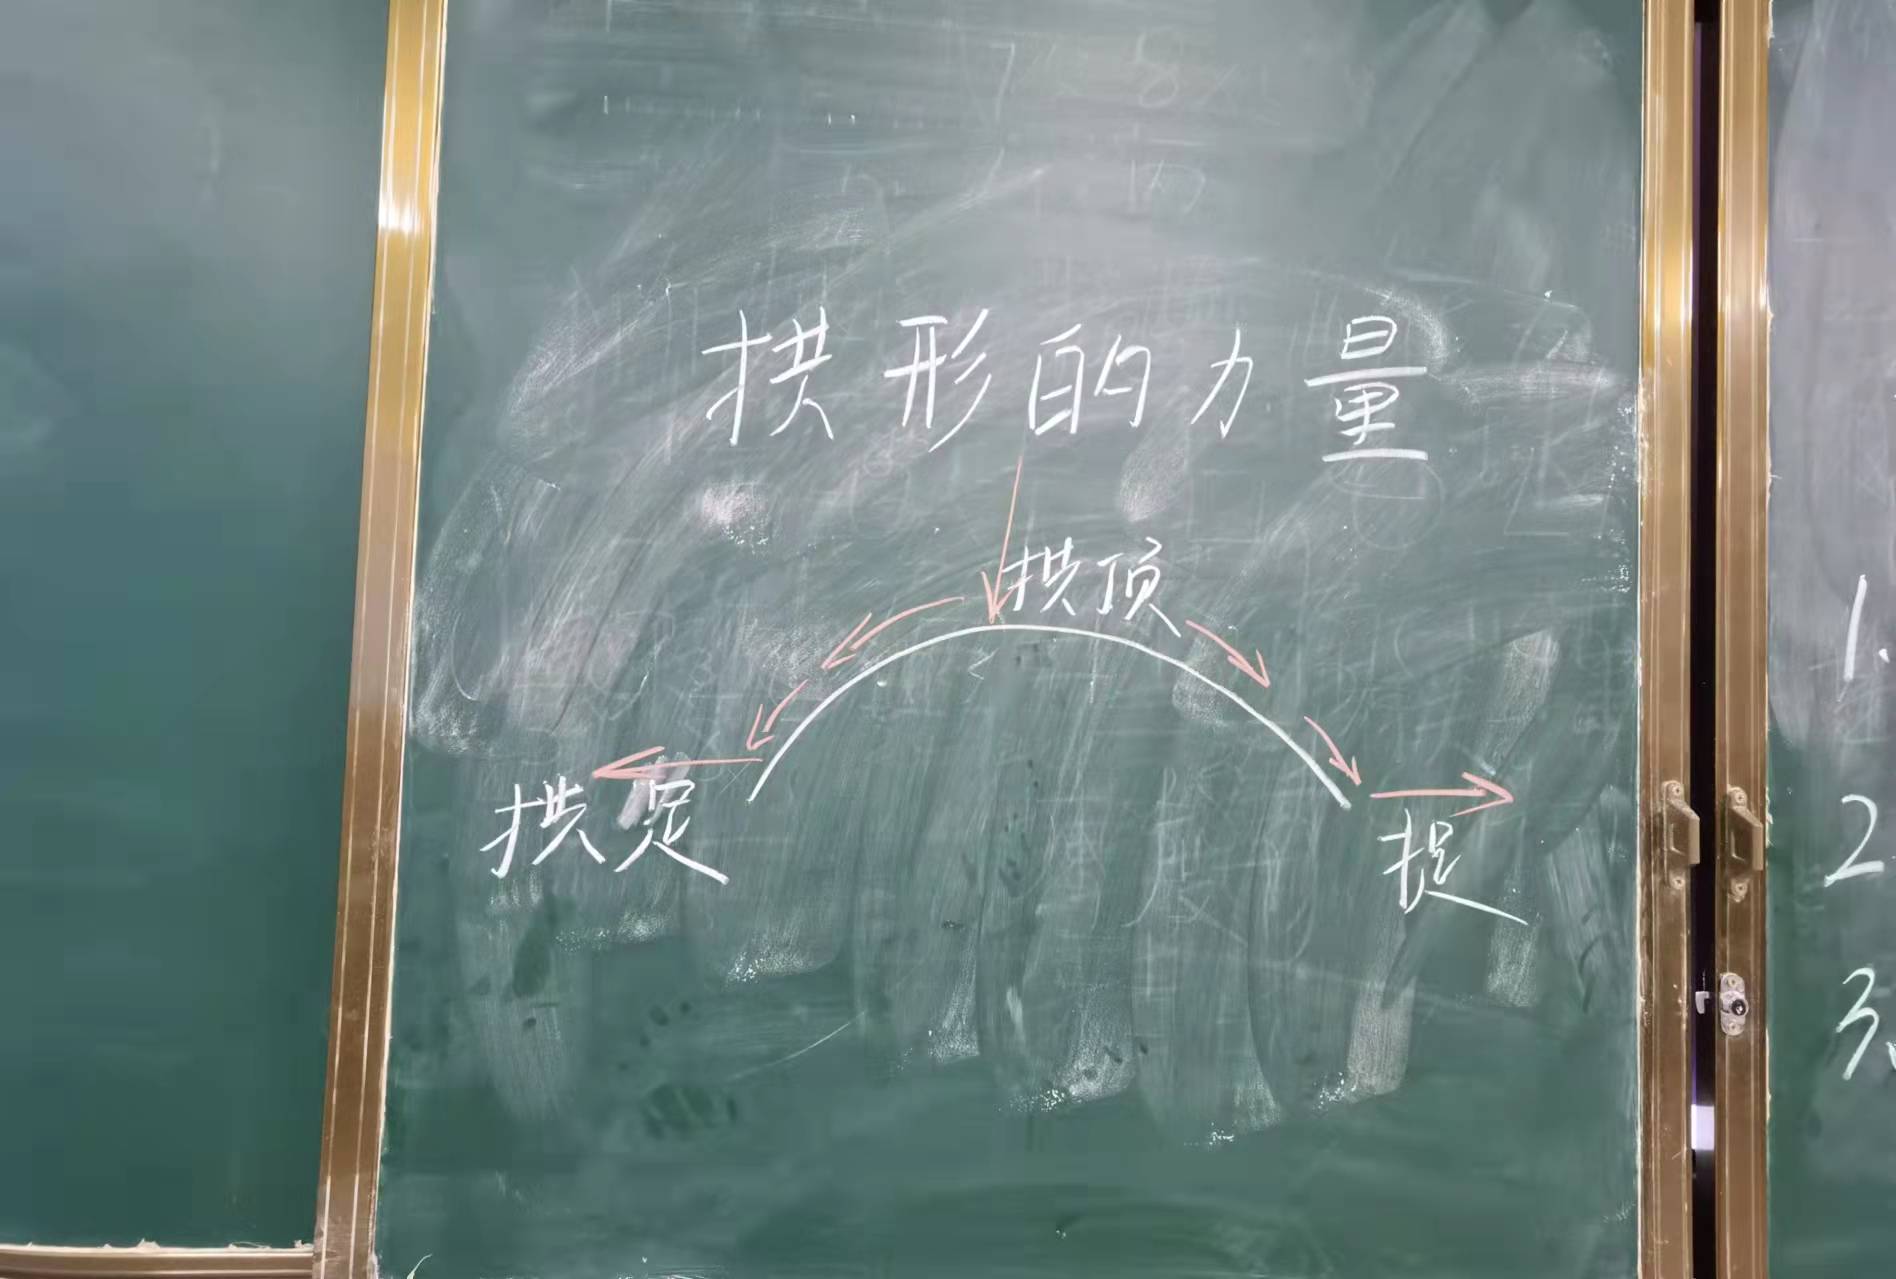 拱形的力量
拱顶
拱足
捉
1.
2.
3.